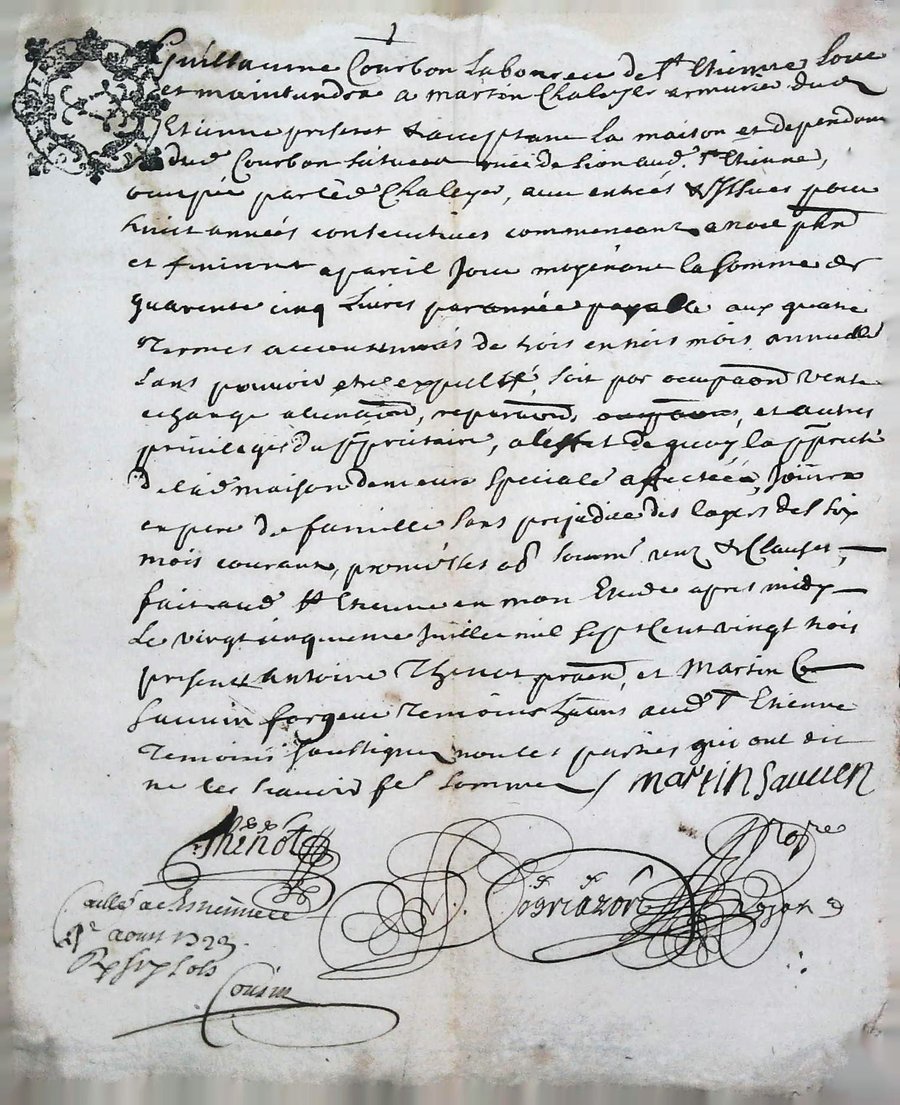 Guillaume Courbon laboureu de St Etienne Loue
et maintundra a martin Chaleyer armurie dud
Etienne present & acceptant la maison et dependan
dud Courbon situeau rue de Lion aud. St Etienne,
occupée par led Chaleyer, aux entrées & Issues pour
huit années consecutives commencant a noel phn
et finiront a pareil Jour moyenant la somme de
quarente cinq Livres par année payable aux quatre
Termes accoutumés de trois en trois mois annuelle
sans pouvoir etre expulsé, soit par occupaon vente
echange alienaon, reparaon, et autres
privileges du pprietaire, a leffet de quoy la pprieté
de lad maison demeure speciale affectéé, Jouira
en pere de famille sans prejudice des loyers des six
mois courant, promesses ob soum renz & Clauses,
fait aud St Etienne en mon Etude apres midy
Le vingt cinquieme Juillet mil sept Cent vingt trois
presents antoine Thenot praen, et Martin
Sauvin forgeur temoins aud St Etienne
Temoins Soubsignez non les parties qui ont dit
ne les scavoir fe sommes / martin sauuen
Thenot
Cellé a St Estienne le
aout 1723
Rx six sols
Cousin